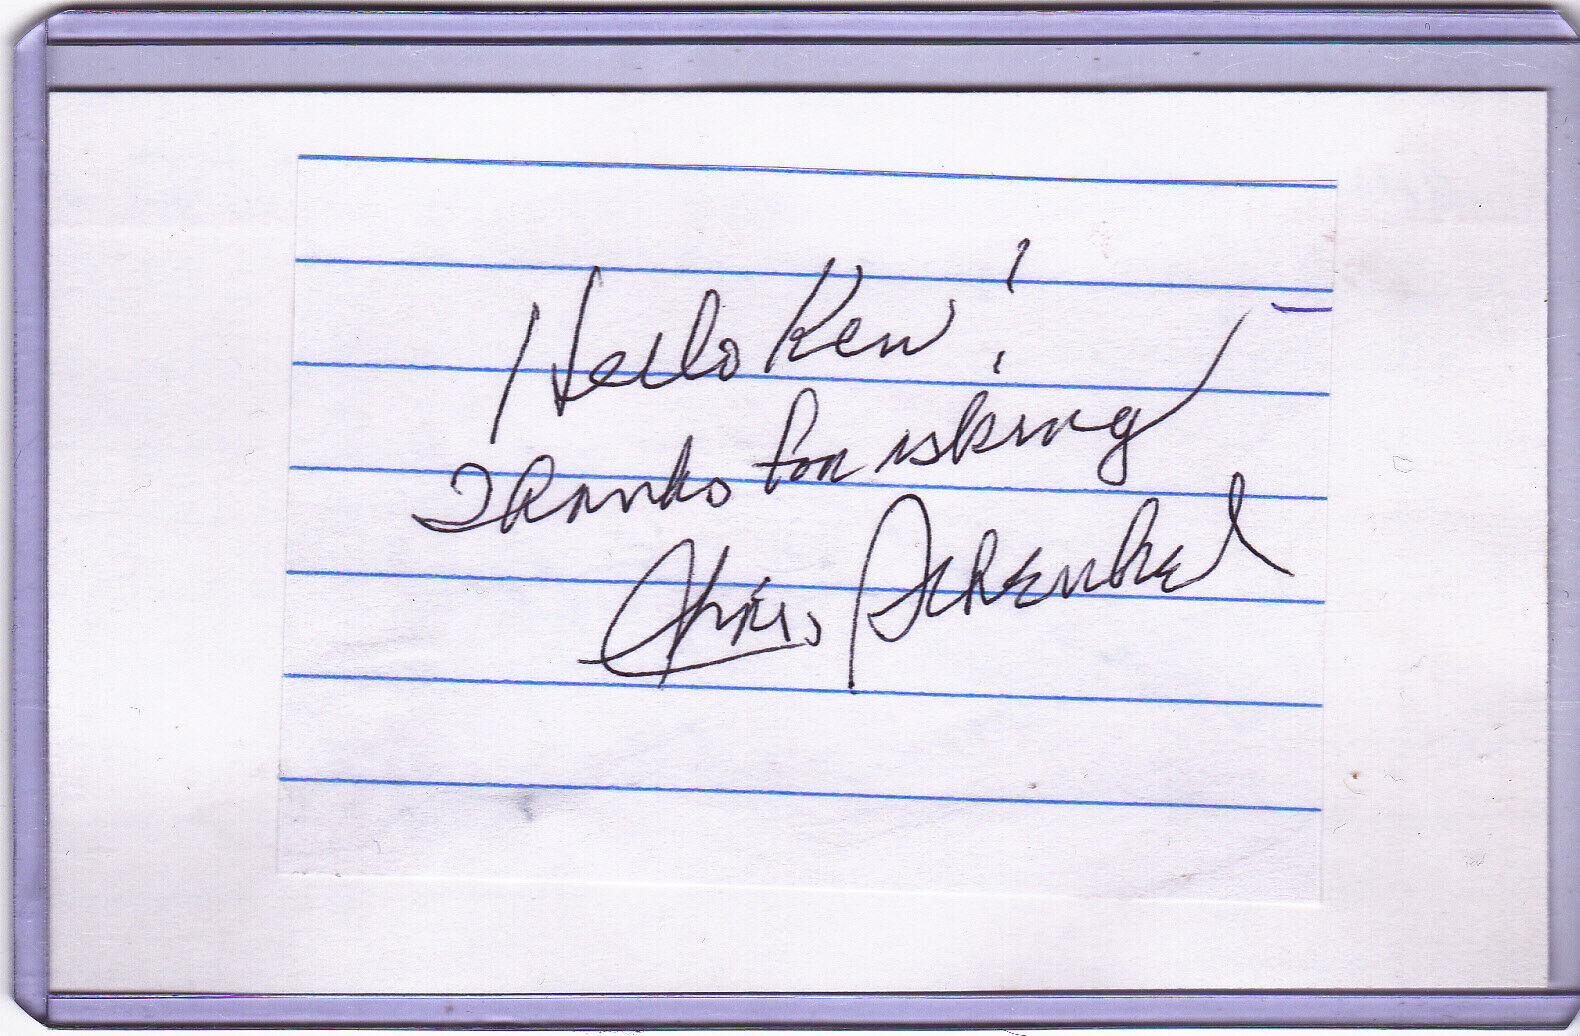 Hello Ken!
Thanks for asking
Chris Schenkel